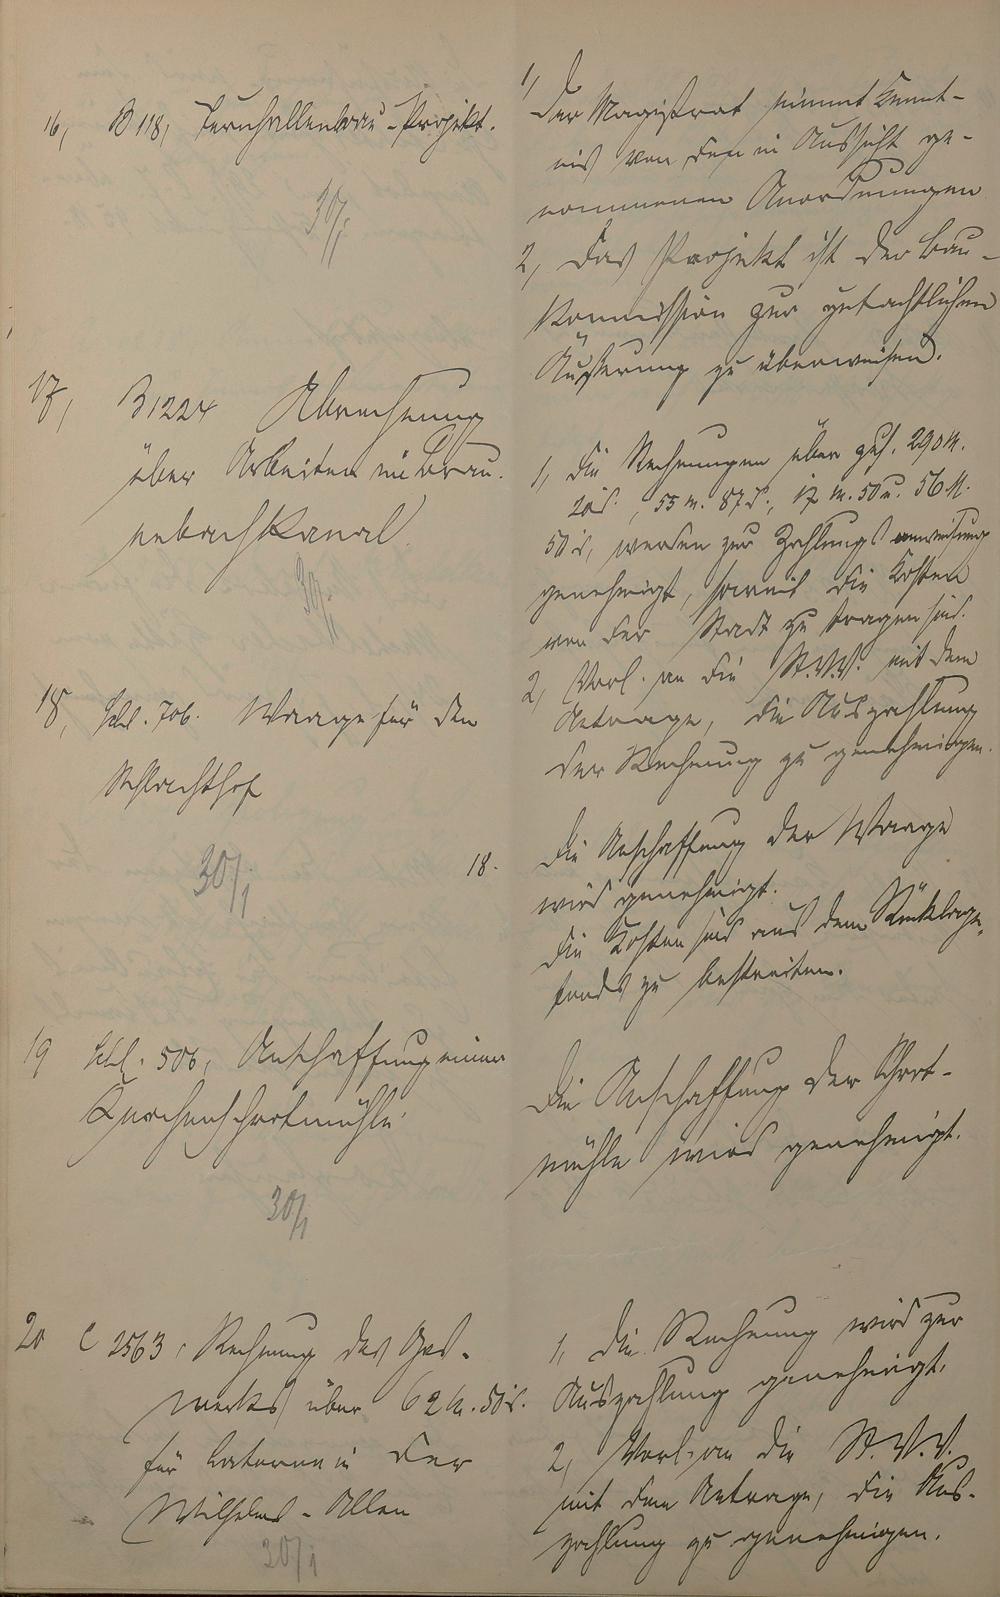 16, B 118, Turnhallenbau-Projekt.
30/1
1, Der Magistrat nimmt Kennt-
nis von den in Aussicht ge-
nommenen Anordnungen
2, Das Projekt ist der Bau-
Kommission zur gutachtlichen
Äußerung zu überweisen.
17, B 1224 Abrechnung
über Arbeiten im Brau-
nebachkanal.
30/1
1, Die Rechnungen über 290 M.
20 d., 53 M. 87 d., 17 M. 50 u. 56 M.
50 d, werden zur Zahlungsanweisung
genehmigt, soweit die Kosten
von der Stadt zu tragen sind.
2, Vorl. an die St.V.V. mit dem
Antrage, die Auszahlung
der Rechnung zu genehmigen.
18, Schl. 706. Waage für den
Schlachthof
30/1
18. Die Anschaffung der Waage
wird genehmigt.
Die Kosten sind aus dem Rücklage-
fonds zu bestreiten.
19 Schl. 506, Anschaffung einer
Knochenschrotmühle.
30/1
Die Anschaffung der Schrot-
mühle wird genehmigt.
20 C 2563, Rechnung des Gas-
werks über 62 M. 50 d.
für Laternen in der
Wilhelms-Allee
30/1
1, Die Rechnung wird zur
Auszahlung genehmigt.
2, Vorl. an die St.V.V.
mit dem Antrage, die Aus-
zahlung zu genehmigen.